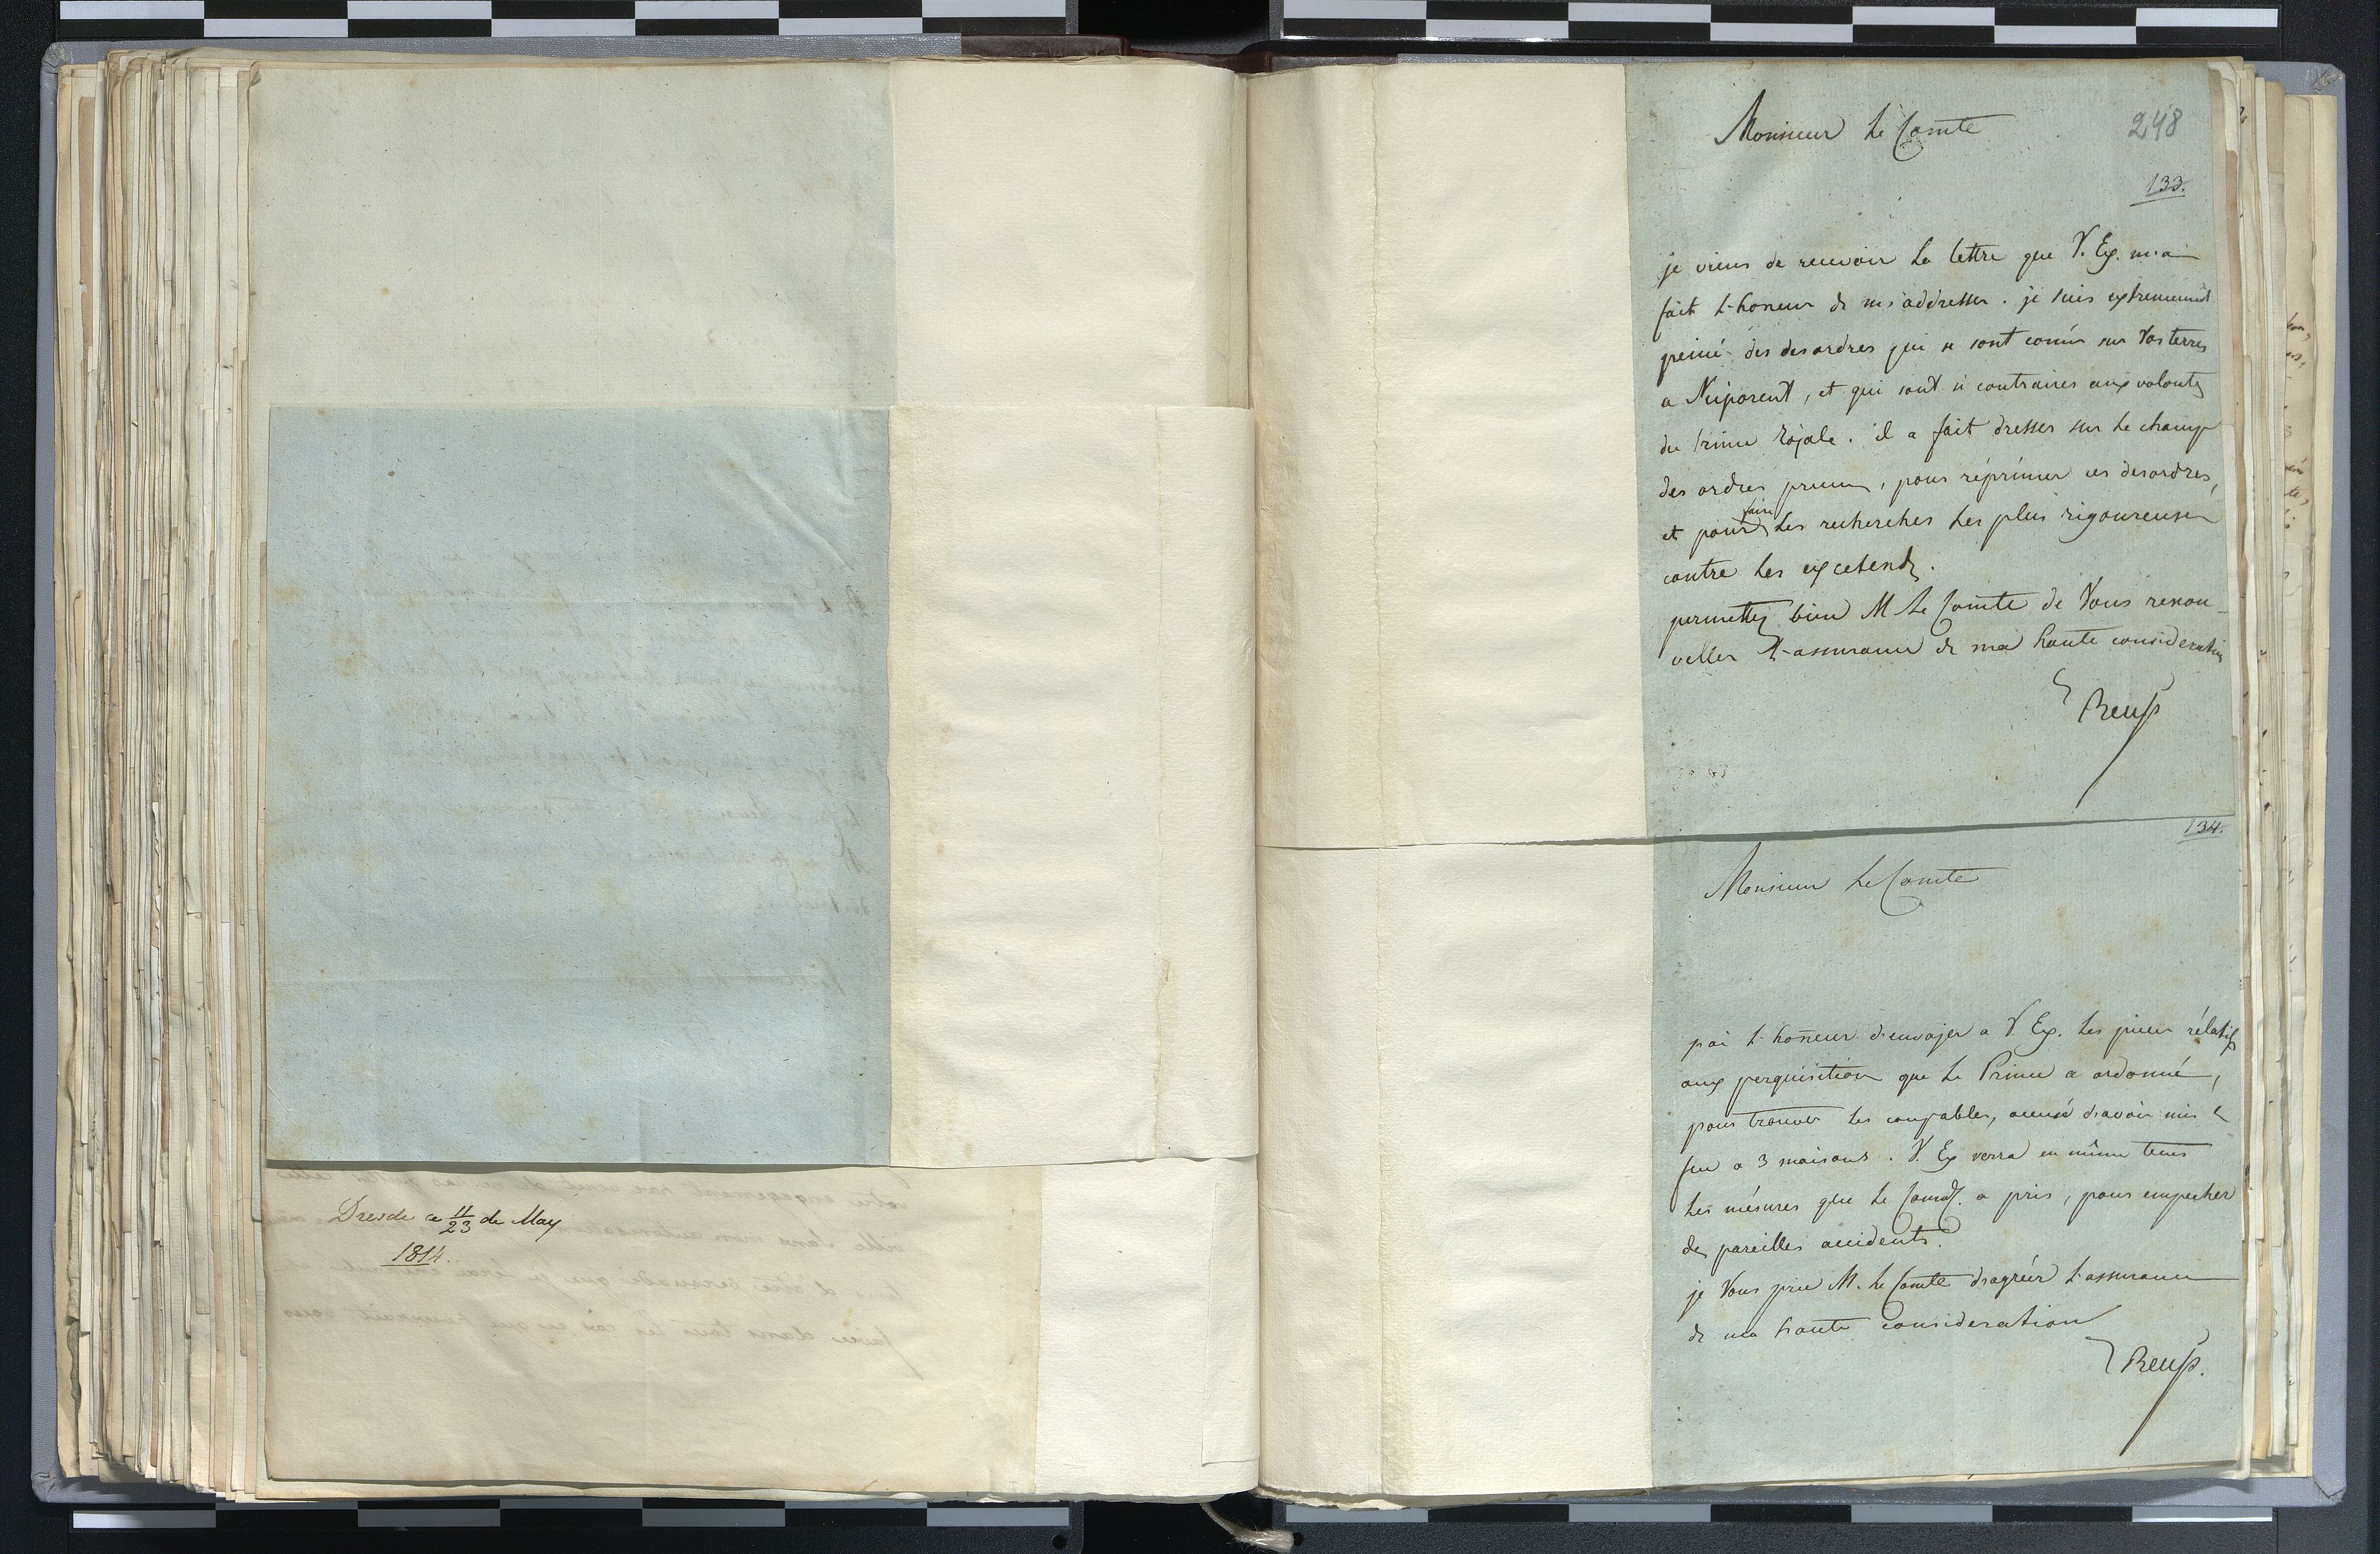 Dresde ce 11/23 de May
1814.
Monsieur le Comte
248
133.
je viens de recevoir la lettre que V. Ex. m'a
fait l'honeur de m'addresser. je suis extremement
peiné des desordres qui se sont comis sur Vos terres
a, et qui sont si contraires aux volontes
du Prince Rojale. il a fait dresser sur le champ
des ordres precis, pour réprimer ces desordres,
et pour faire les recherches les plus rigoureuses
contre les excedents.
permettez bien M le Comte de Vous renou-
veller l'assurance de ma haute consideration
Reuß
134.
Monsieur le Comte
j'ai l'honneur d'envojer a V. Ex. les pieces rélatifs
aux perquisition que le Prince a ordonné,
pour trouver les coupables, accusé d'avoir mis le
feu a 3 maisons. V. Ex verra en même tems
les mésures que le a pris, pour empecher
des pareilles accidents.
je Vous prie M. le Comte d'agréer l'assurance
de ma haute consideration
Reuß.